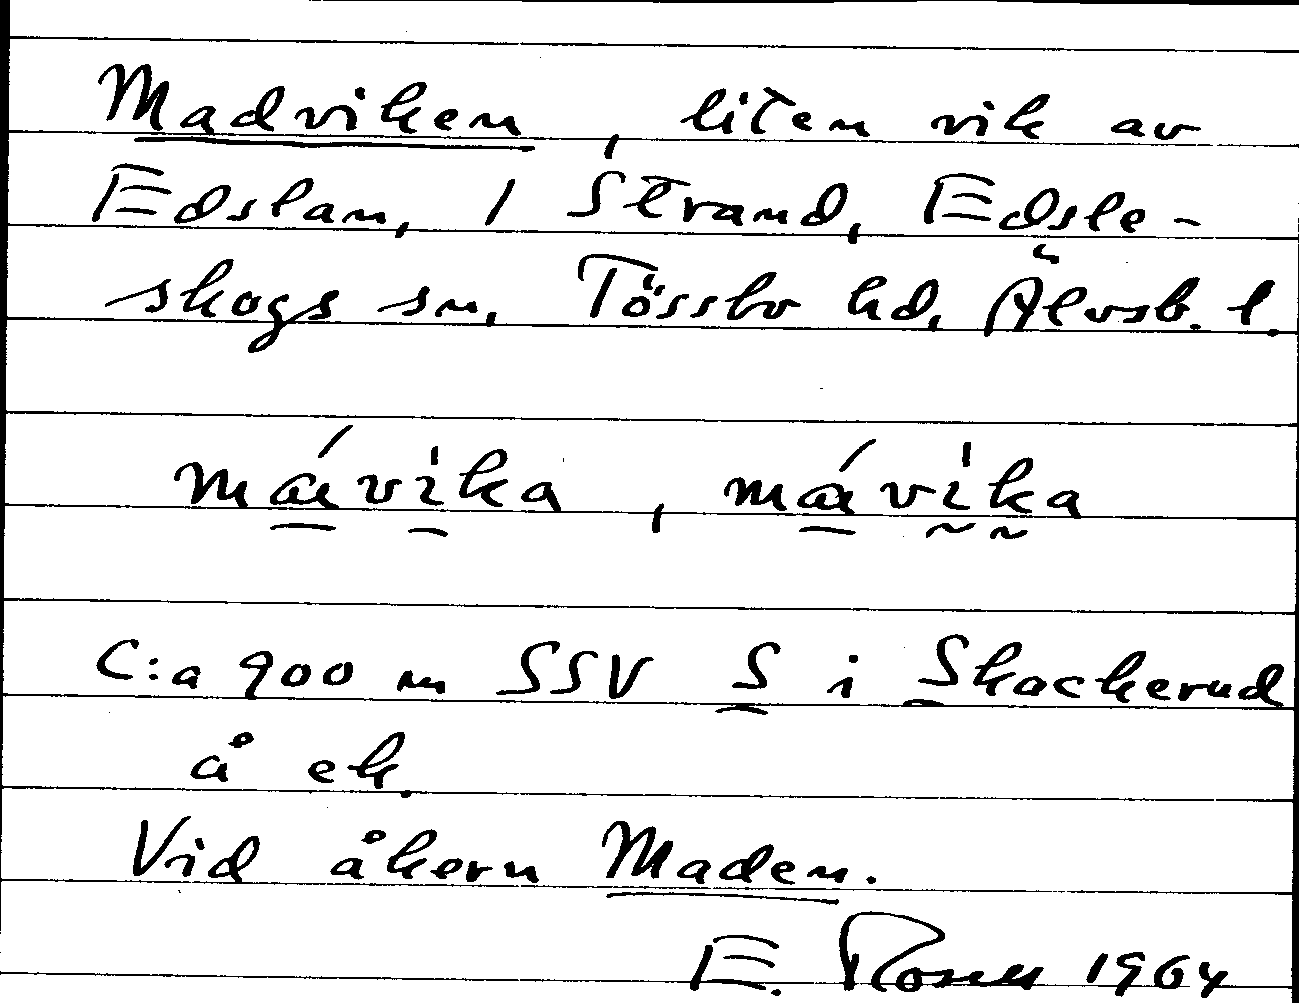 Madviken, liten vik av
Edslan, 1 Strand, Edsle-
skogs sn, Tössbo hd, Älvsb. l.
má̱vika, má̱vika
C:a 900 m SSV S i Skackerud
å ek.
Vid åkern Maden.
E. Rosell 1964